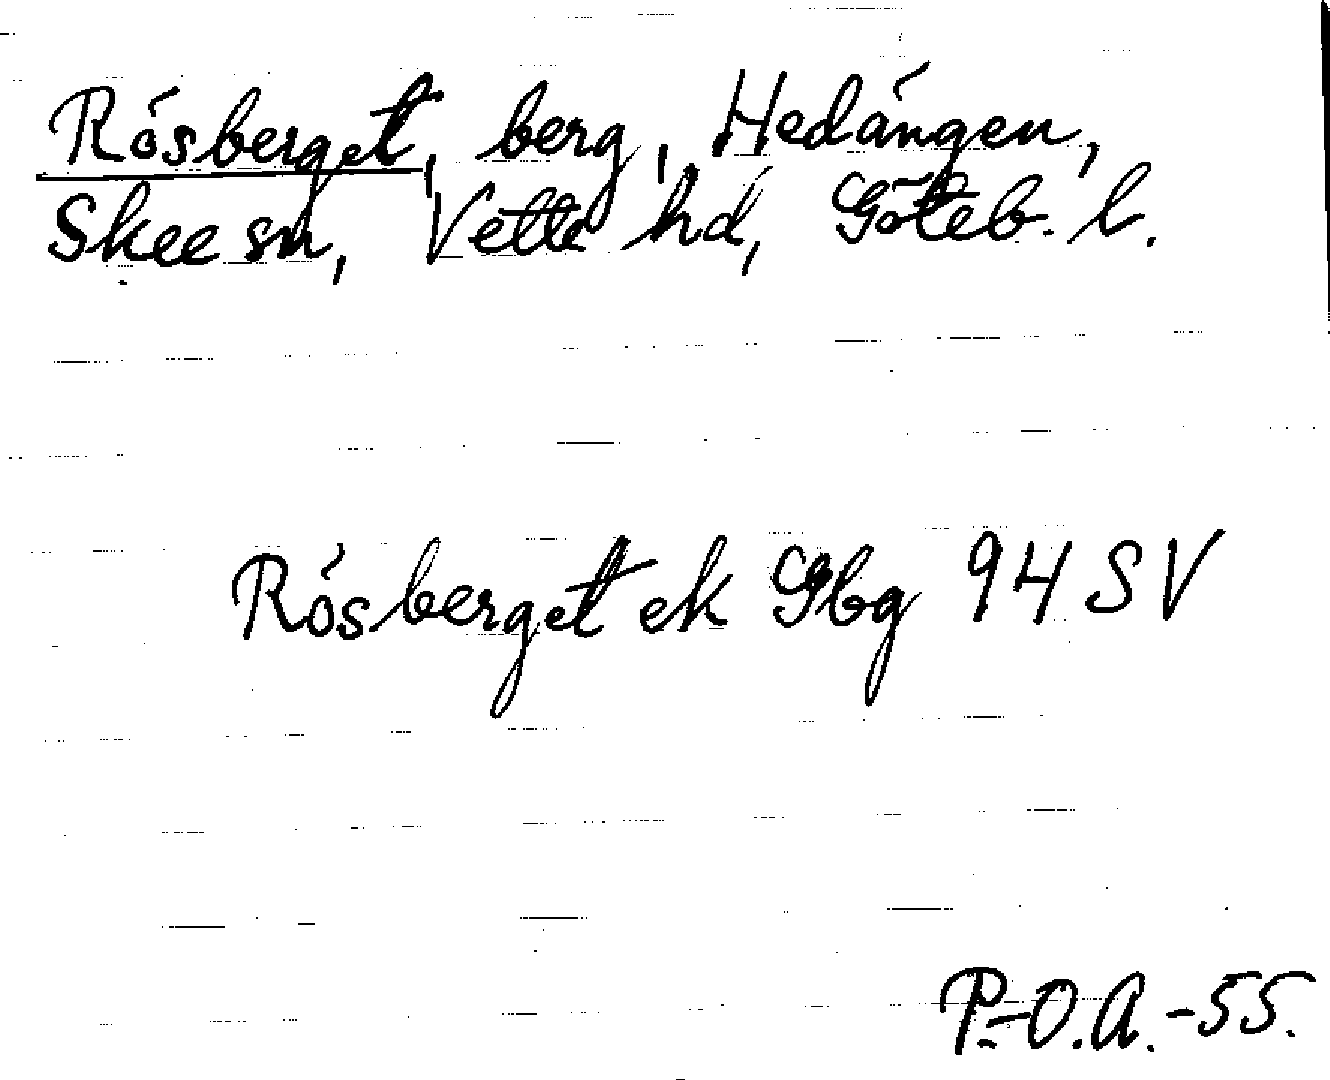 Rösberget, berg, Hedängen,
Skee sn, Vette hd, Göteb. l.
Rösberget ek Gbg 94 SV
P.-O.A.-55.